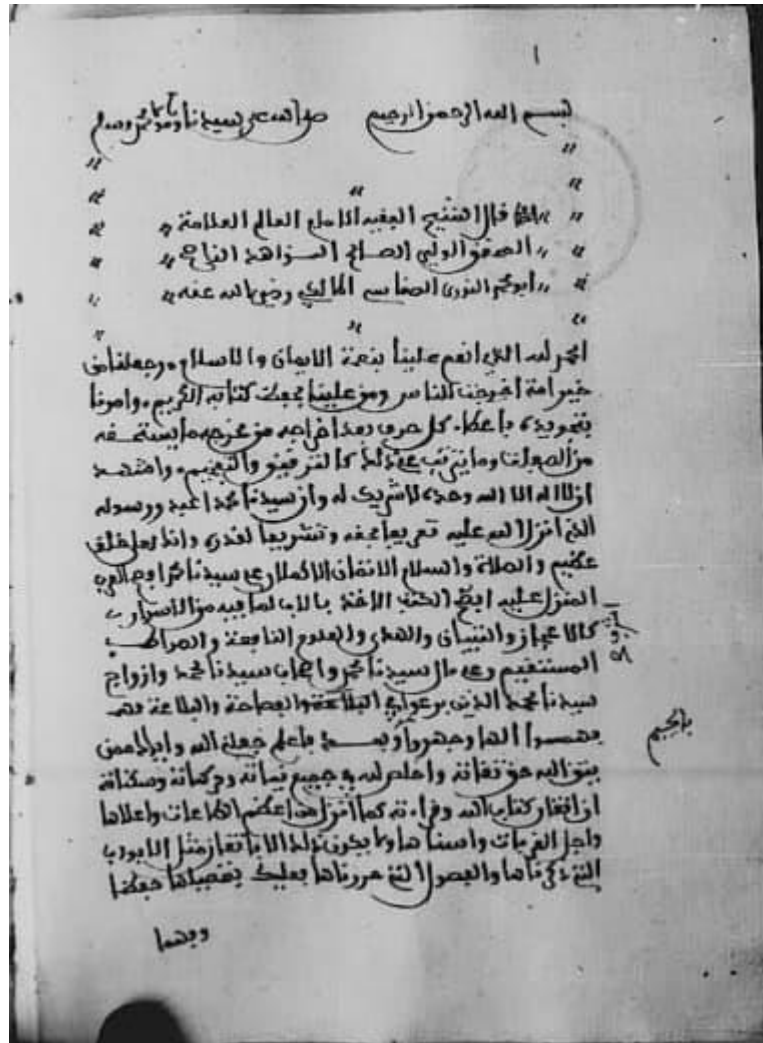 ١
بسم الله الرحمن الرحيم صلى الله على سيدنا ومولانا محمد وسلم
قال الشيخ الفقيه الامام العالم العلامة
المحقق الولي الصالح الزاهد الناصح
ابو محمد النوري الصفاقسي المالكي رضي الله عنه
الحمد لله الذي انعم علينا بنعمة الايمان والاسلام وجعلنا من
خير امة اخرجت للناس ومن علينا بحفظ كتابه الكريم وامرنا
بتجويده باعطاء كل حرف بعد اخراجه من مخرجه ما يستحقه
من الصفات وما يترتب على ذلك كالترقيق والتفخيم واشهد
ان لا اله الا الله وحده لا شريك له وان سيدنا محمدا عبده ورسوله
الذي انزل الله عليه تعريفا بحقه وتشريفا لقدره وانك لعلى خلق
عظيم والصلاة والسلام الاتمان الاكملان على سيدنا محمد افصح العرب
المنزل عليه افصح الكتب الاخذ بالالباب لما فيه من الاسرار
كالاعجاز والتبيان والهدى والعلوم النافعة والصراط
المستقيم وعلى ءال سيدنا محمد واصحاب سيدنا محمد وازواج
سيدنا محمد الذين برعوا في البلاغة والفصاحة والبلاغة فهم
الها وجهروا وبعد فاعلم جعلنا الله واياك ممن
يتق الله حق تقاته واخلص لله في جميع نياته وحركاته وسكناته
ان اتقان كتاب الله وقراءته كما انزل من اعظم الطاعات واعلاها
واجل القربات واسناها ولا يكون ذلك الا باتقان مثل الابواب
التي ذكرناها والفصول التي حررناها فعليك بتفصيلها حفظا
وفهما